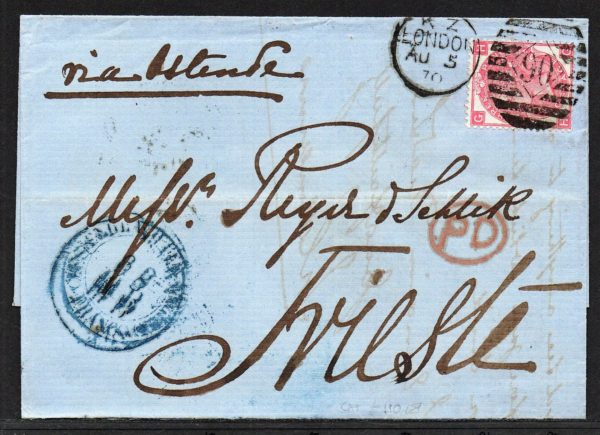 via Ostende
K Z
LONDON
AU 5
70
90
H G
G H
Messrs. Reyer & Schlik
PD
Trieste